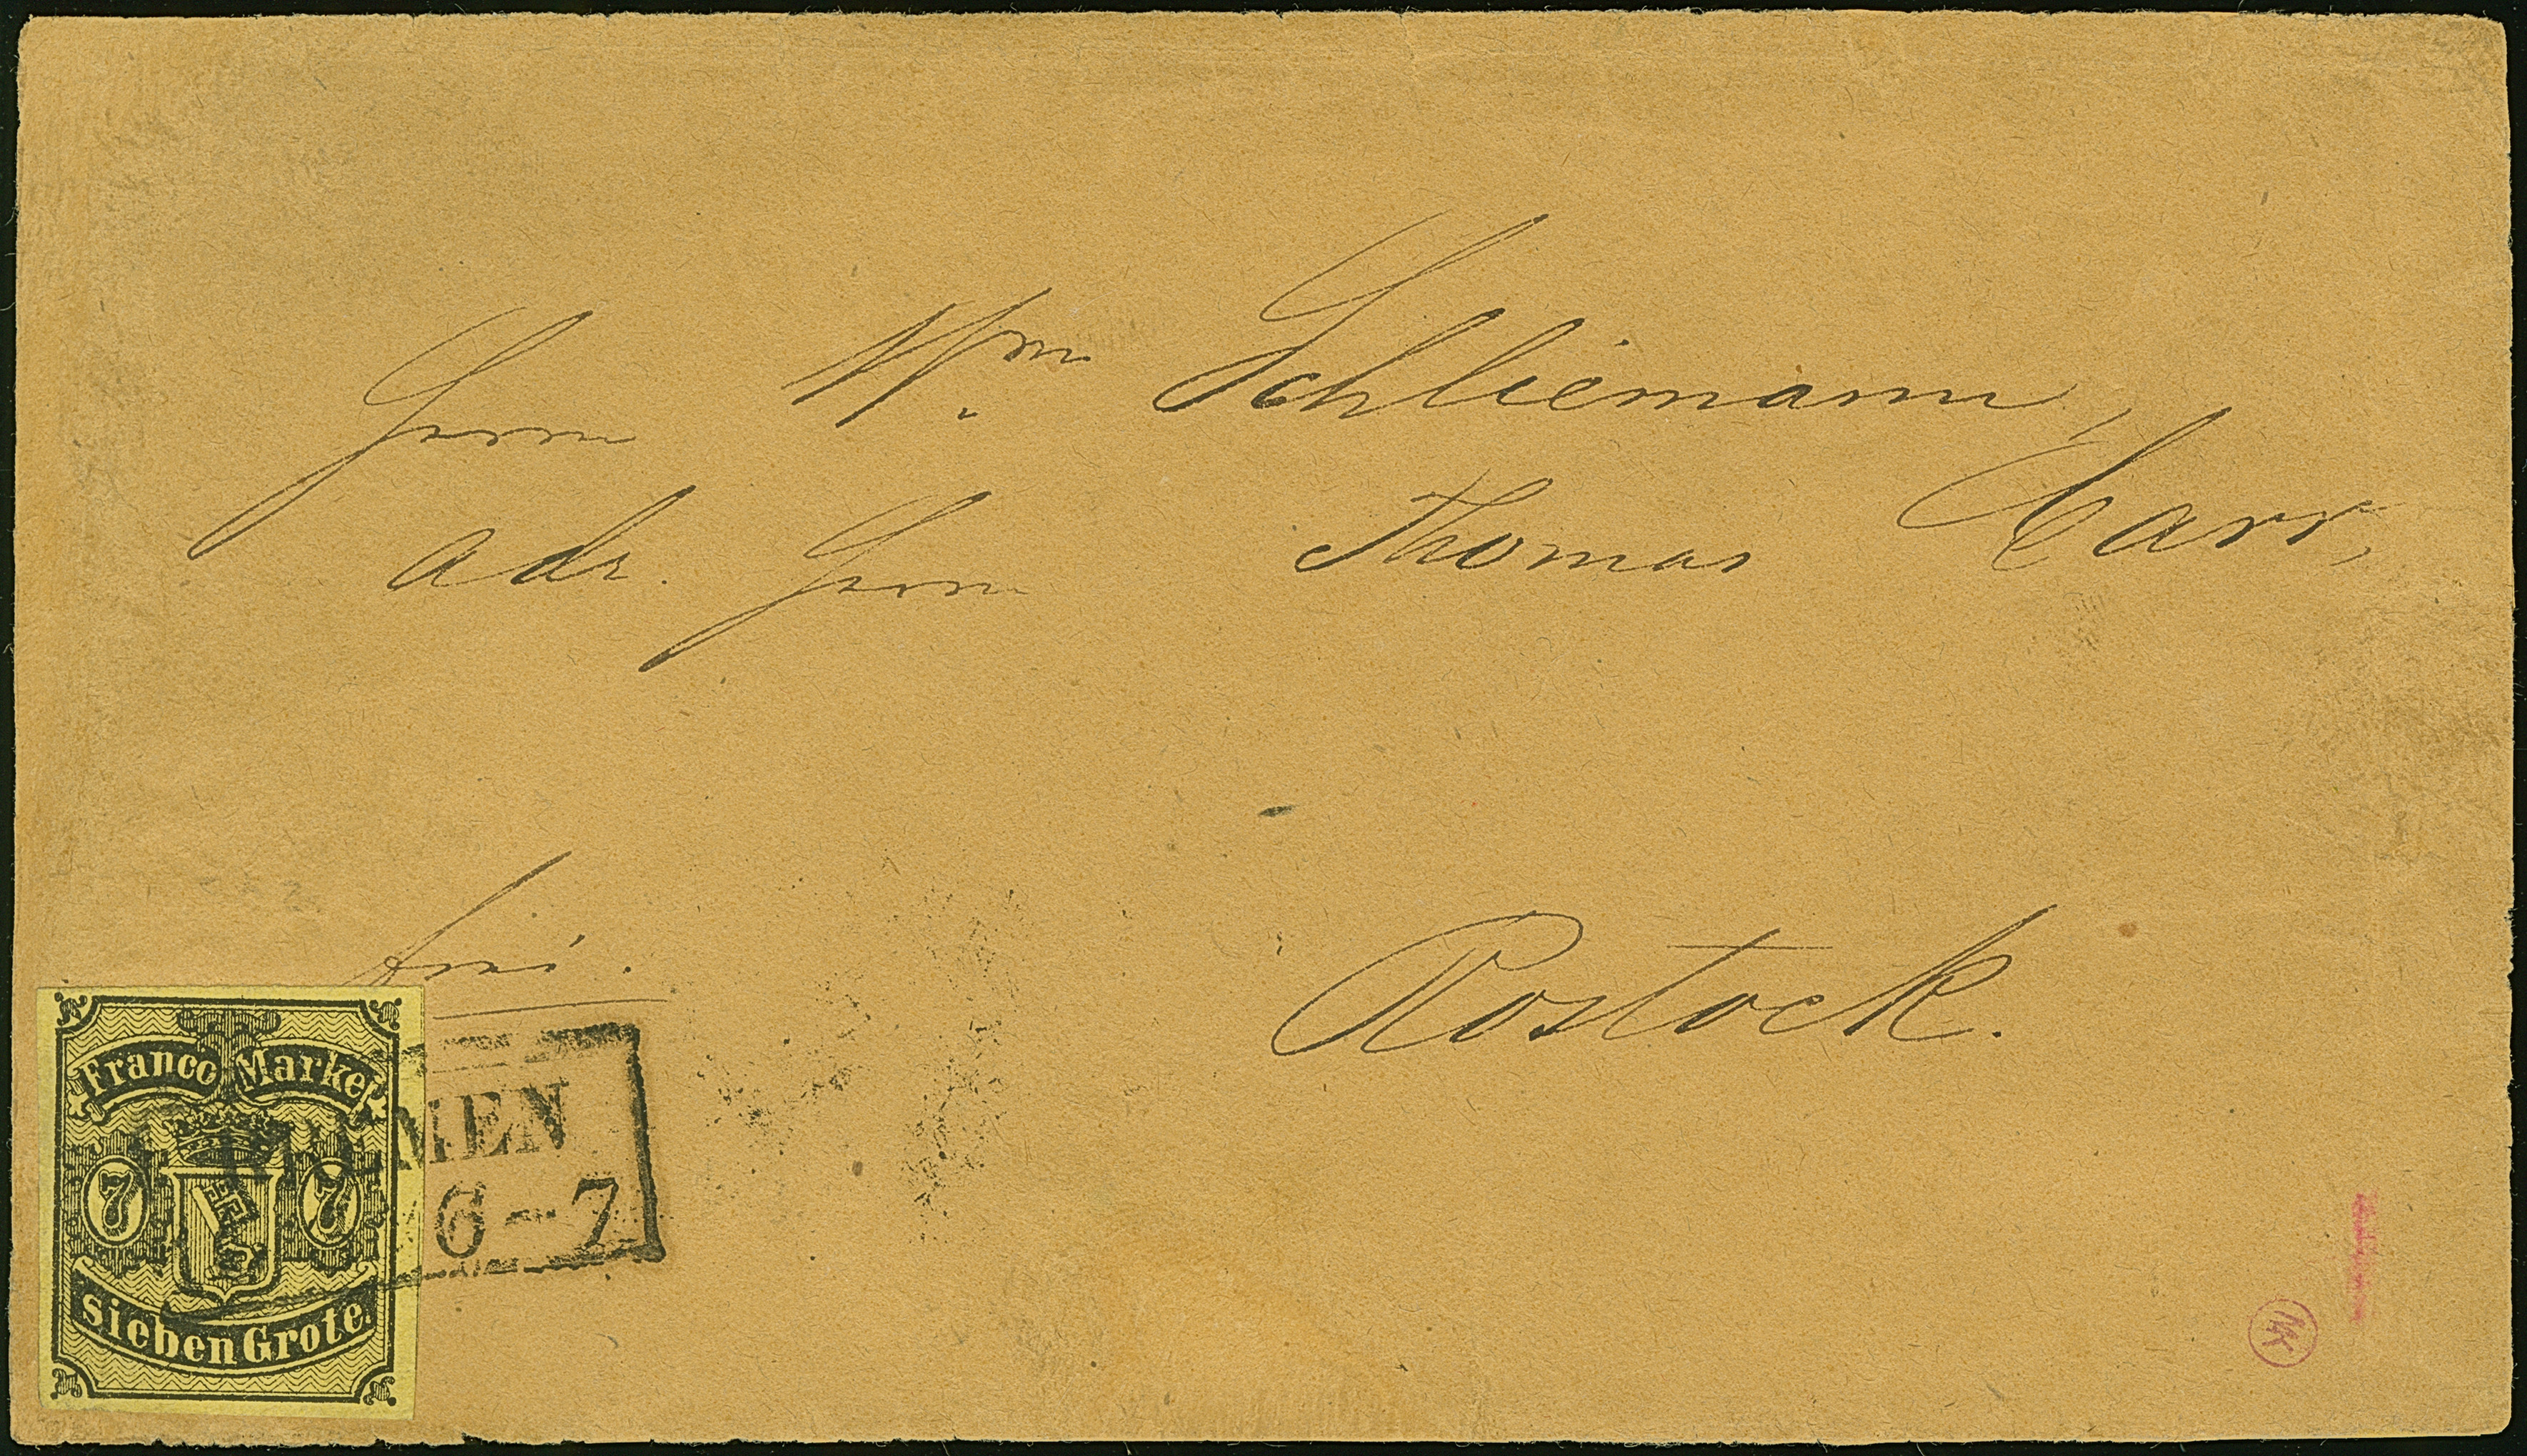 Herrn Wm. Schliemann,
adr. Herrn Thomas Carr,
frei.
Rostock.
Franco Marke
7 7
sieben Grote.
BREMEN
6-7